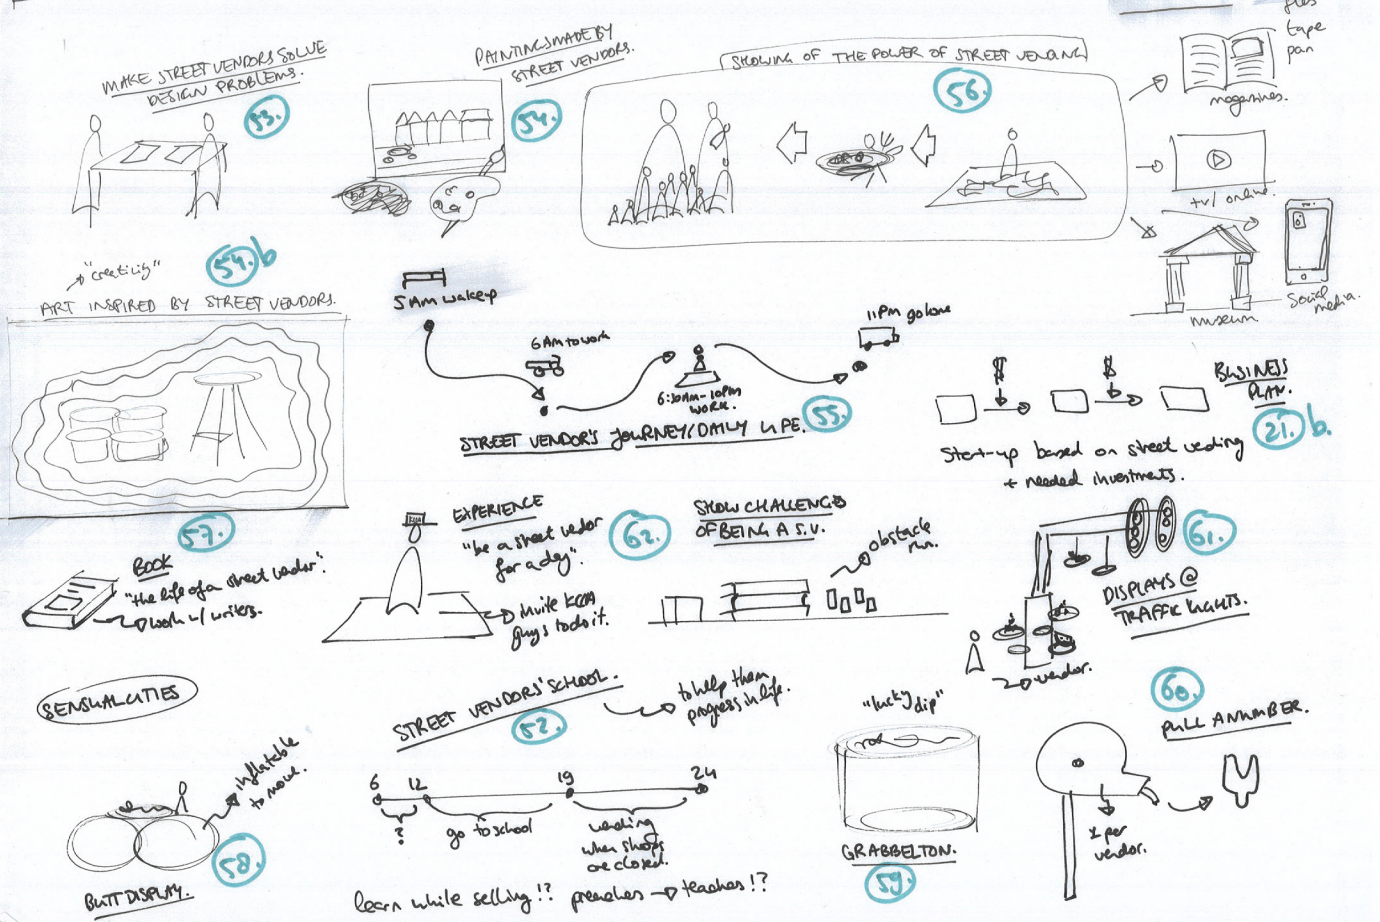 MAKE STREET VENDORS SOLVE
DESIGN PROBLEMS.
53.
PAINTINGS MADE BY
STREET VENDORS.
54.
SHOWING OF THE POWER OF STREET VENDING
56.
tape
pan
magazines.
tv/online
museum
Social
media.
54.b
"creativity"
ART INSPIRED BY STREET VENDORS.
5AM wakeup
6AM to work
6:30AM-10PM
WORK.
11PM go home
STREET VENDOR'S JOURNEY/DAILY LIFE.
55.
$
$
BUSINESS
PLAN.
21.b.
Start-up based on street vending
+ needed investments.
57.
BOOK
"the life of a street vendor".
work w/ writers.
KCCA
EXPERIENCE
"be a street vedor
for a day"
62.
invite KCCA
guys to do it.
SHOW CHALLENGES
OF BEING A S.V.
obstacle
run.
61.
DISPLAYS @
TRAFFIC LIGHTS.
vendor.
SENSUAL CITIES
inflatable
to move.
58.
BUTT DISPLAY.
STREET VENDORS' SCHOOL.
52.
to help them
progress in life.
6 12 19 24
?
go to school
vending
when shops
are closed.
learn while selling!? preachers teachers!?
"lucky dip"
GRABBELTON.
59.
60.
PULL A NUMBER.
1 per
vendor.